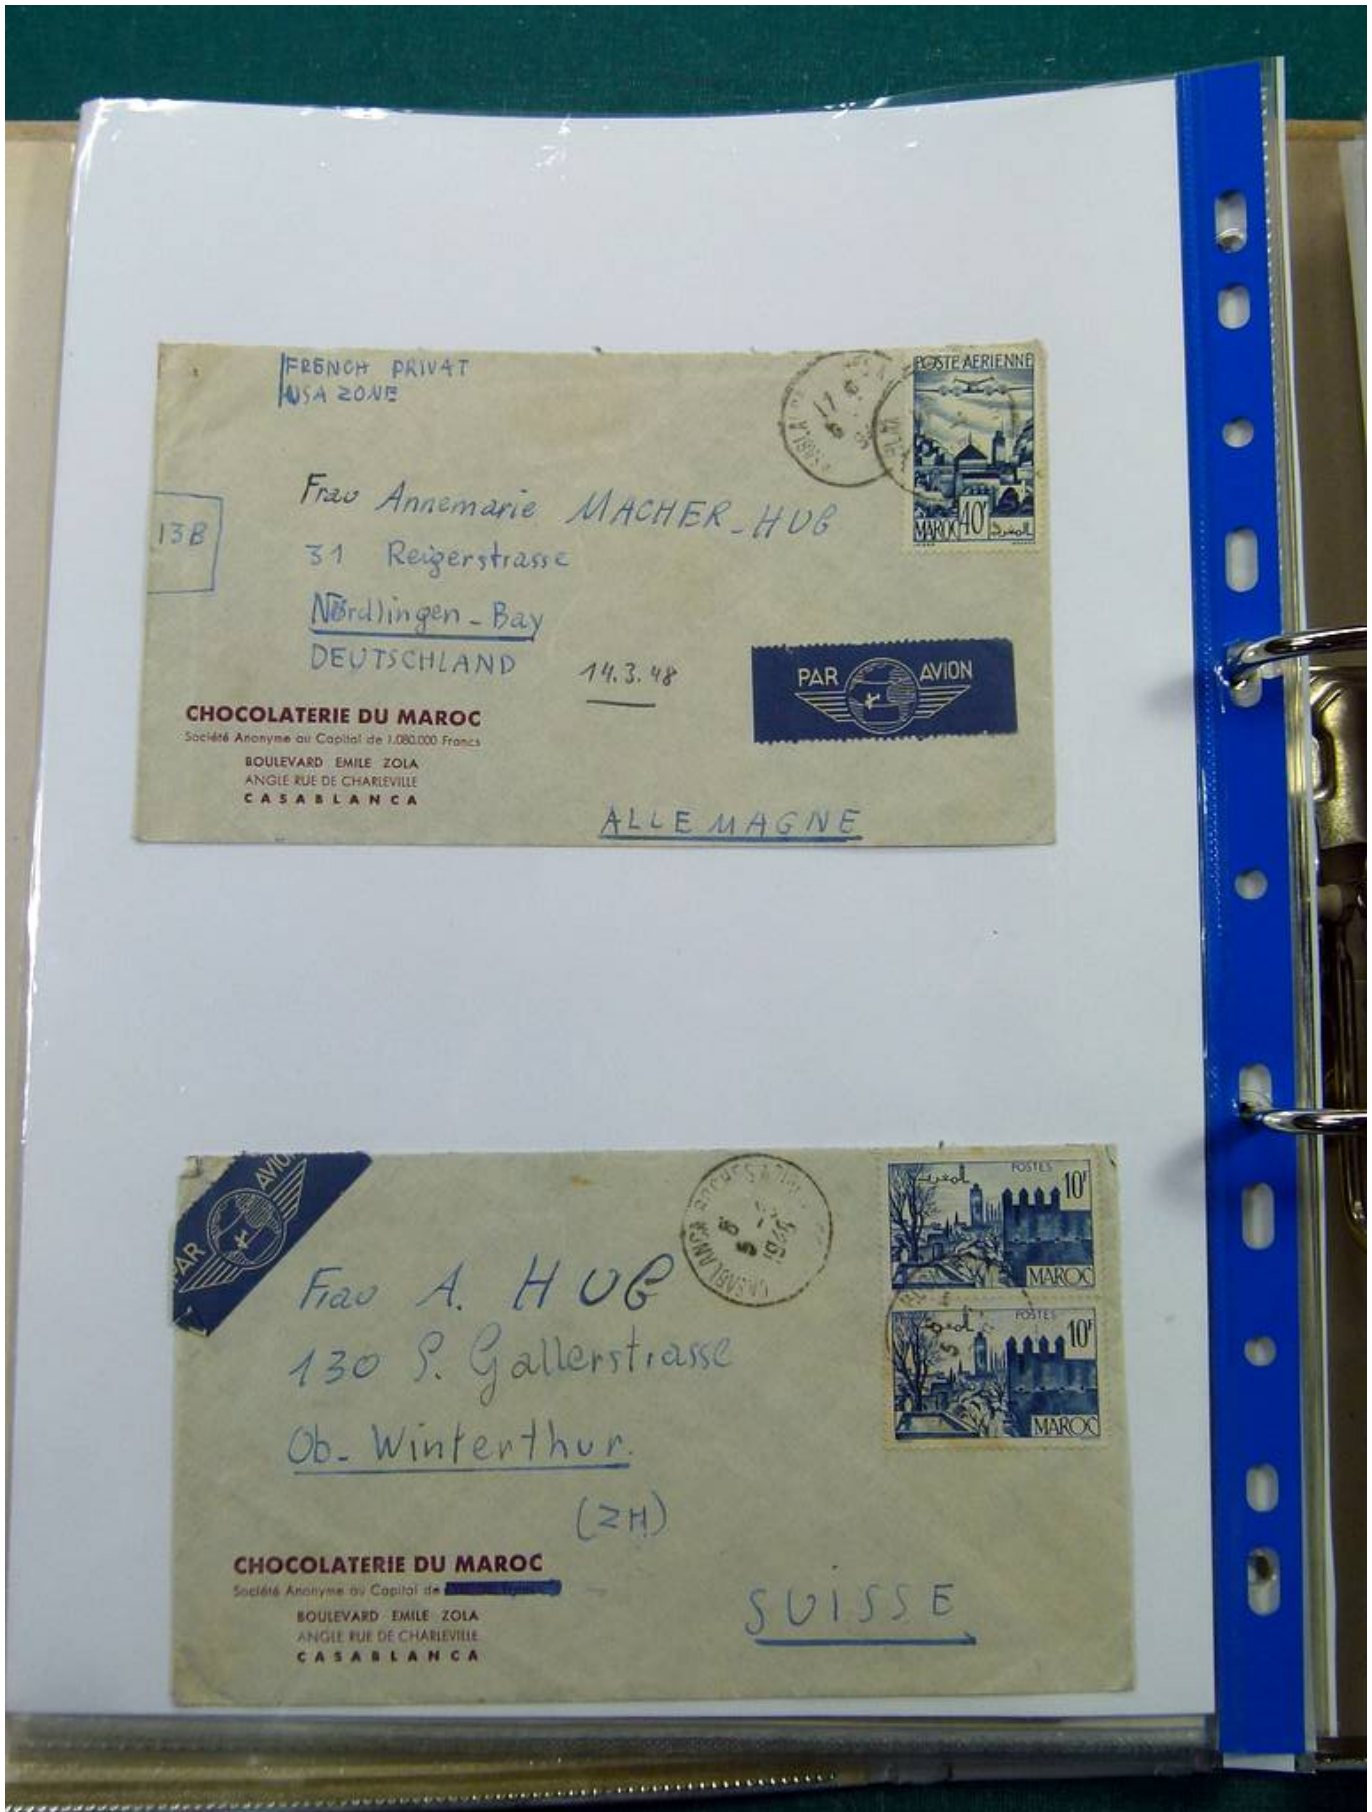 FRENCH PRIVAT
USA ZONE
POSTE AERIENNE
MAROC 40F المغرب
13B
Frau Annemarie MACHER-HUG
31 Reigerstrasse
Nördlingen-Bay
DEUTSCHLAND
14.3.48
PAR AVION
CHOCOLATERIE DU MAROC
Société Anonyme au Capital de 1.080.000 Francs
BOULEVARD EMILE ZOLA
ANGLE RUE DE CHARLEVILLE
CASABLANCA
ALLEMAGNE
PAR AVION
المغرب POSTES 10F
MAROC
المغرب POSTES 10F
MAROC
Frau A. HUG
130 S. Gallerstrasse
Ob-Winterthur.
(ZH)
CHOCOLATERIE DU MAROC
Société Anonyme au Capital de
BOULEVARD EMILE ZOLA
ANGLE RUE DE CHARLEVILLE
CASABLANCA
SUISSE